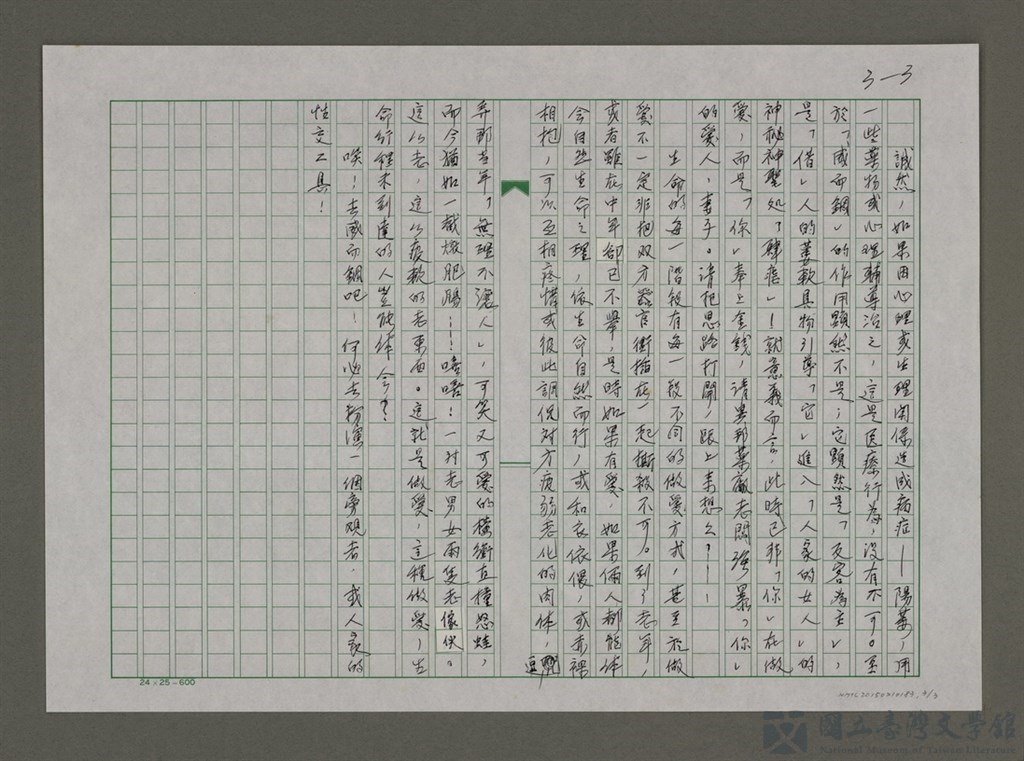 3—3
誠然，如果因心理或生理関係造成病症——陽萎，用
一些薬物或心理輔導治之，這是医療行為，沒有不可。至
於「威而鋼」的作用顕然不是；它顕然是「反客為主」，
是「借」人的萎軟具物引導「它」進入「人家的女人」的
神秘神聖処「肆瘧」！就意義而言，此時已非「你」在做
愛，而是「你」奉上金錢，請異邦薬廠老闆強暴「你」
的愛人，妻子。請把思路打開，跟上来想么？！！
生命的每一階段有每一段不同的做愛方式，甚至於做
愛不一定非把双方器官衝插在一起撕殺不可。到了老年，
或者雖在中年卻已不舉，是時如果有愛，如果倆人都能体
会自然生命之理，依生命自然而行，或和衣依偎，或赤裸
相抱，可以互相疼惜或彼此調侃対方疲弱老化的肉体，逗
弄那当年「無理不讓人」，可笑又可愛的橫衝直撞怒蛙，
而今猶如一截爛肥腸……！嘻嘻！一対老男女兩隻老傢伙。
這么老，這么疲軟的老東西。這就是做愛，這種做愛，生
命行程未到達的人豈能体会？
唉！去威而鋼吧！何必去扮演一個旁观者，或人家的
性交工具！
24×25=600
NMTL20150210183, 3/3
國立臺灣文學館
National Museum of Taiwan Literature